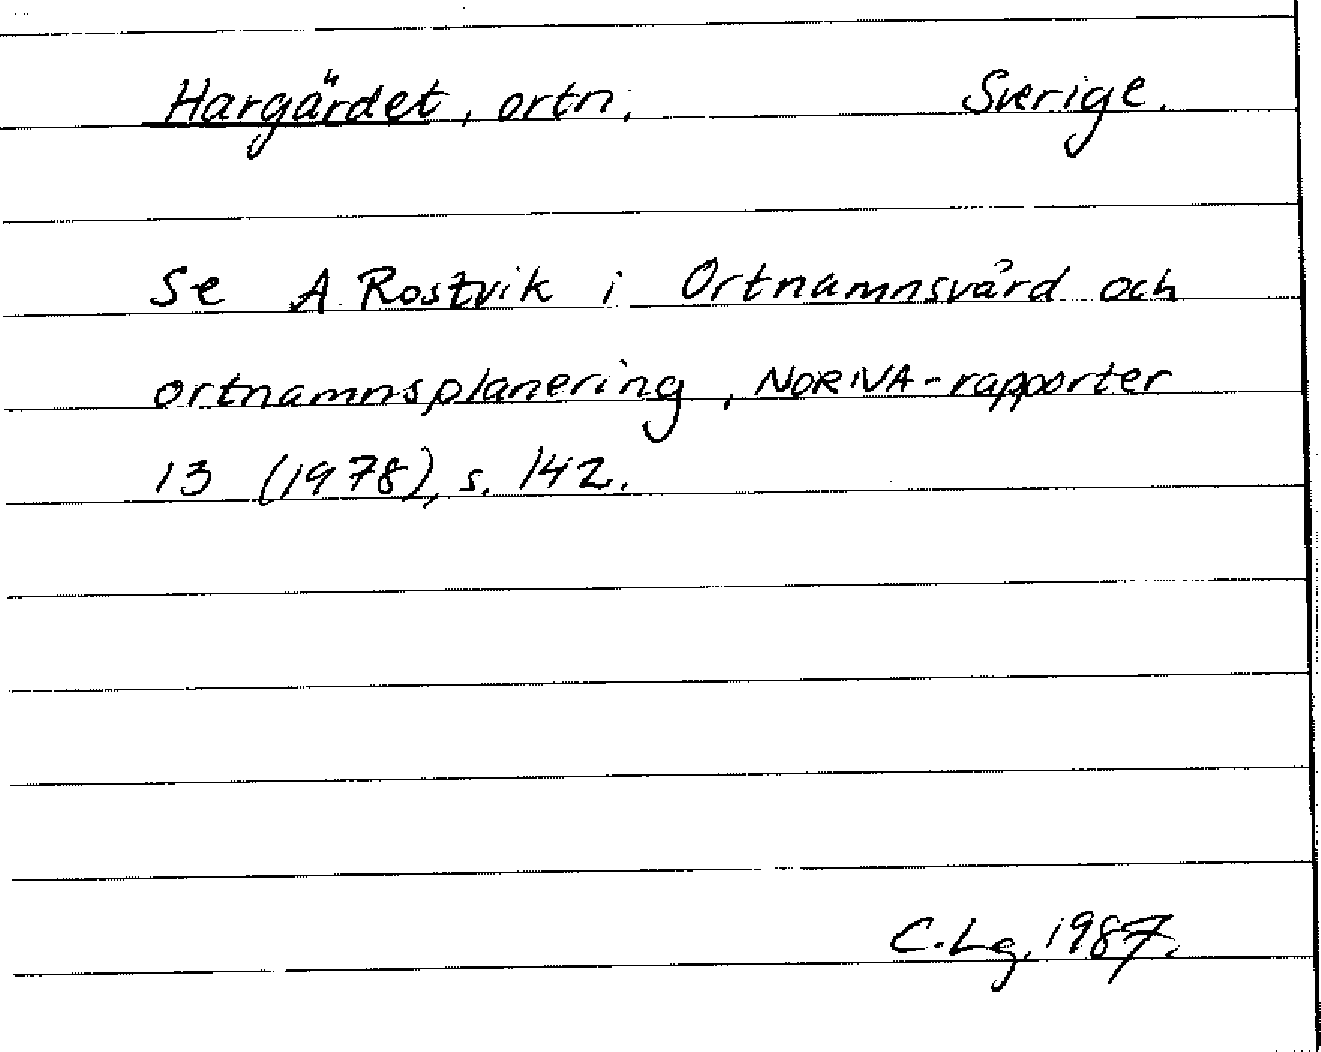 Hargärdet, ortn. Sverige.
Se A Rostvik i Ortnamnsvård och
ortnamnsplanering, NORNA-rapporter
13 (1978), s. 142.
C. Lg, 1987.